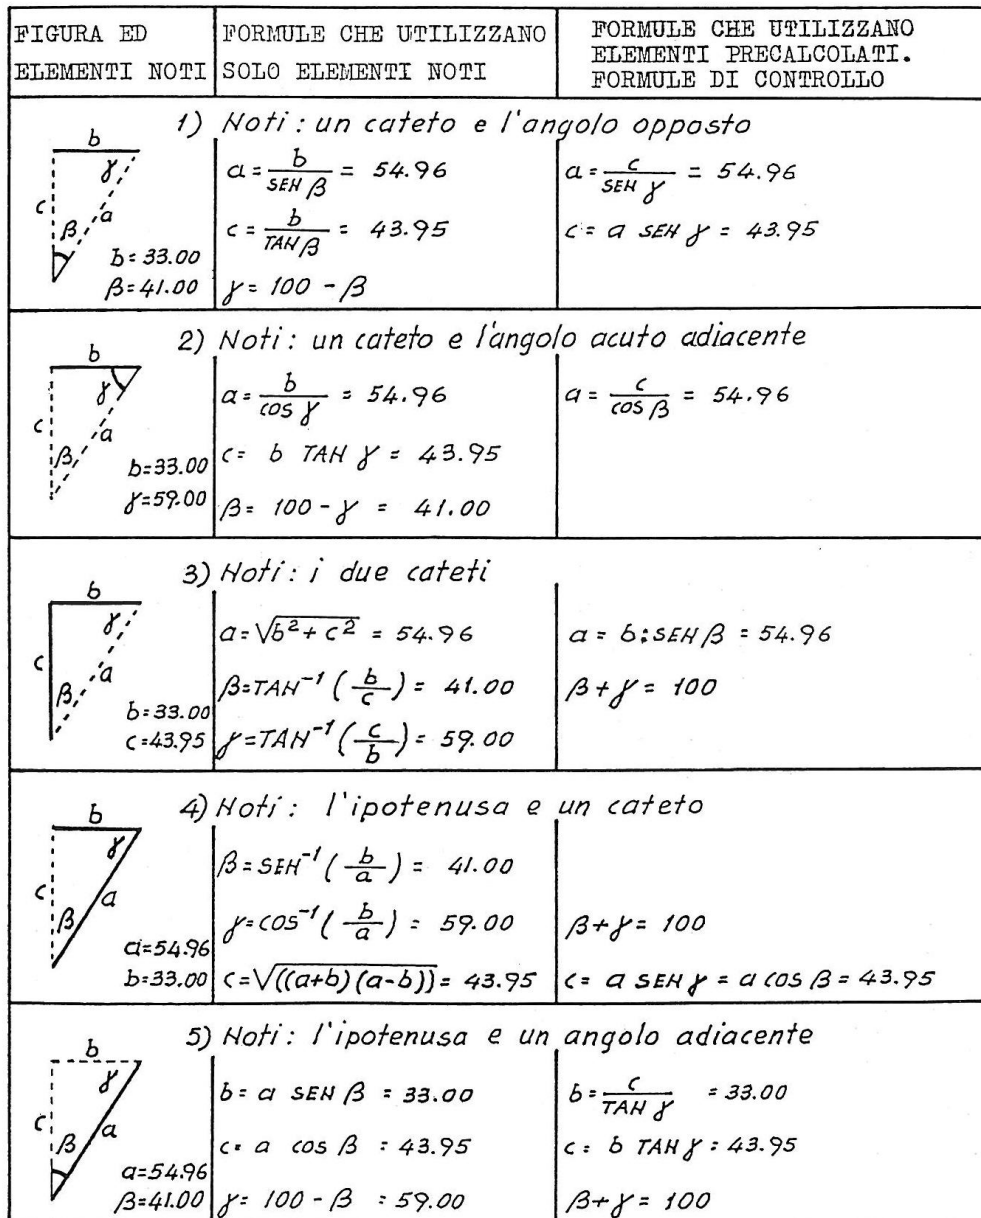 FIGURA ED
ELEMENTI NOTI
FORMULE CHE UTILIZZANO
SOLO ELEMENTI NOTI
FORMULE CHE UTILIZZANO
ELEMENTI PRECALCOLATI.
FORMULE DI CONTROLLO
1) Noti: un cateto e l'angolo opposto
b
γ
c
β
a
b=33.00
β=41.00
a = b/SEN β = 54.96
c = b/TAN β = 43.95
γ = 100 - β
a = c/SEN γ = 54.96
c = a SEN γ = 43.95
2) Noti: un cateto e l'angolo acuto adiacente
b
γ
c
β
a
b=33.00
γ=59.00
a = b/COS γ = 54.96
c = b TAN γ = 43.95
β = 100 - γ = 41.00
a = c/COS β = 54.96
3) Noti: i due cateti
b
γ
c
β
a
b=33.00
c=43.95
a = √b² + c² = 54.96
β = TAN⁻¹ (b/c) = 41.00
γ = TAN⁻¹ (c/b) = 59.00
a = b:SEN β = 54.96
β + γ = 100
4) Noti: l'ipotenusa e un cateto
b
γ
c
β
a
a=54.96
b=33.00
β = SEN⁻¹ (b/a) = 41.00
γ = COS⁻¹ (b/a) = 59.00
c = √((a+b)(a-b)) = 43.95
β + γ = 100
c = a SEN γ = a COS β = 43.95
5) Noti: l'ipotenusa e un angolo adiacente
b
γ
c
β
a
a=54.96
β=41.00
b = a SEN β = 33.00
c = a COS β = 43.95
γ = 100 - β = 59.00
b = c/TAN γ = 33.00
c = b TAN γ = 43.95
β + γ = 100